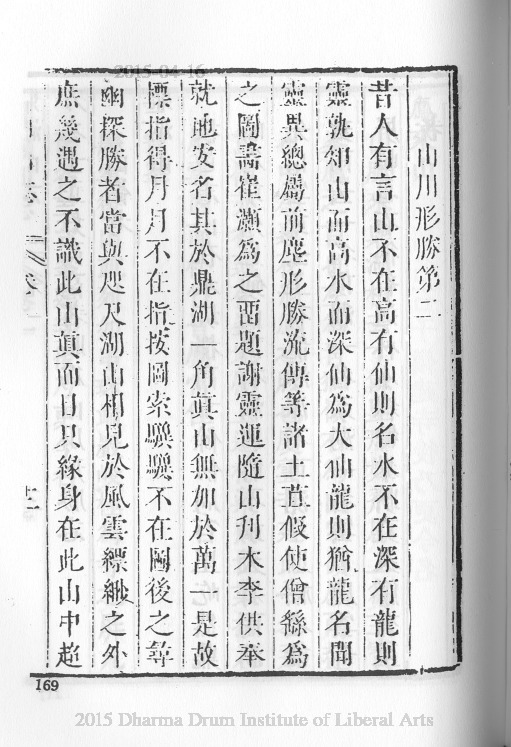 2015-04-16
山川形勝第二
昔人有言山不在高有仙則名水不在深有龍則
靈孰知山而高水而深仙爲大仙龍則猶龍名聞
靈異總屬前塵形勝流傳等諸土苴假使僧繇爲
之圖畵崔灝爲之畱題謝靈運隨山刋木李供奉
就地安名其於鼎湖一角眞山無加於萬一是故
標指得月月不在指按圖索驥驥不在圖後之尋
幽探勝者當與咫尺湖山相見於風雲縹緲之外
庶幾遇之不識此山眞面目只緣身在此山中超
169
2015 Dharma Drum Institute of Liberal Arts